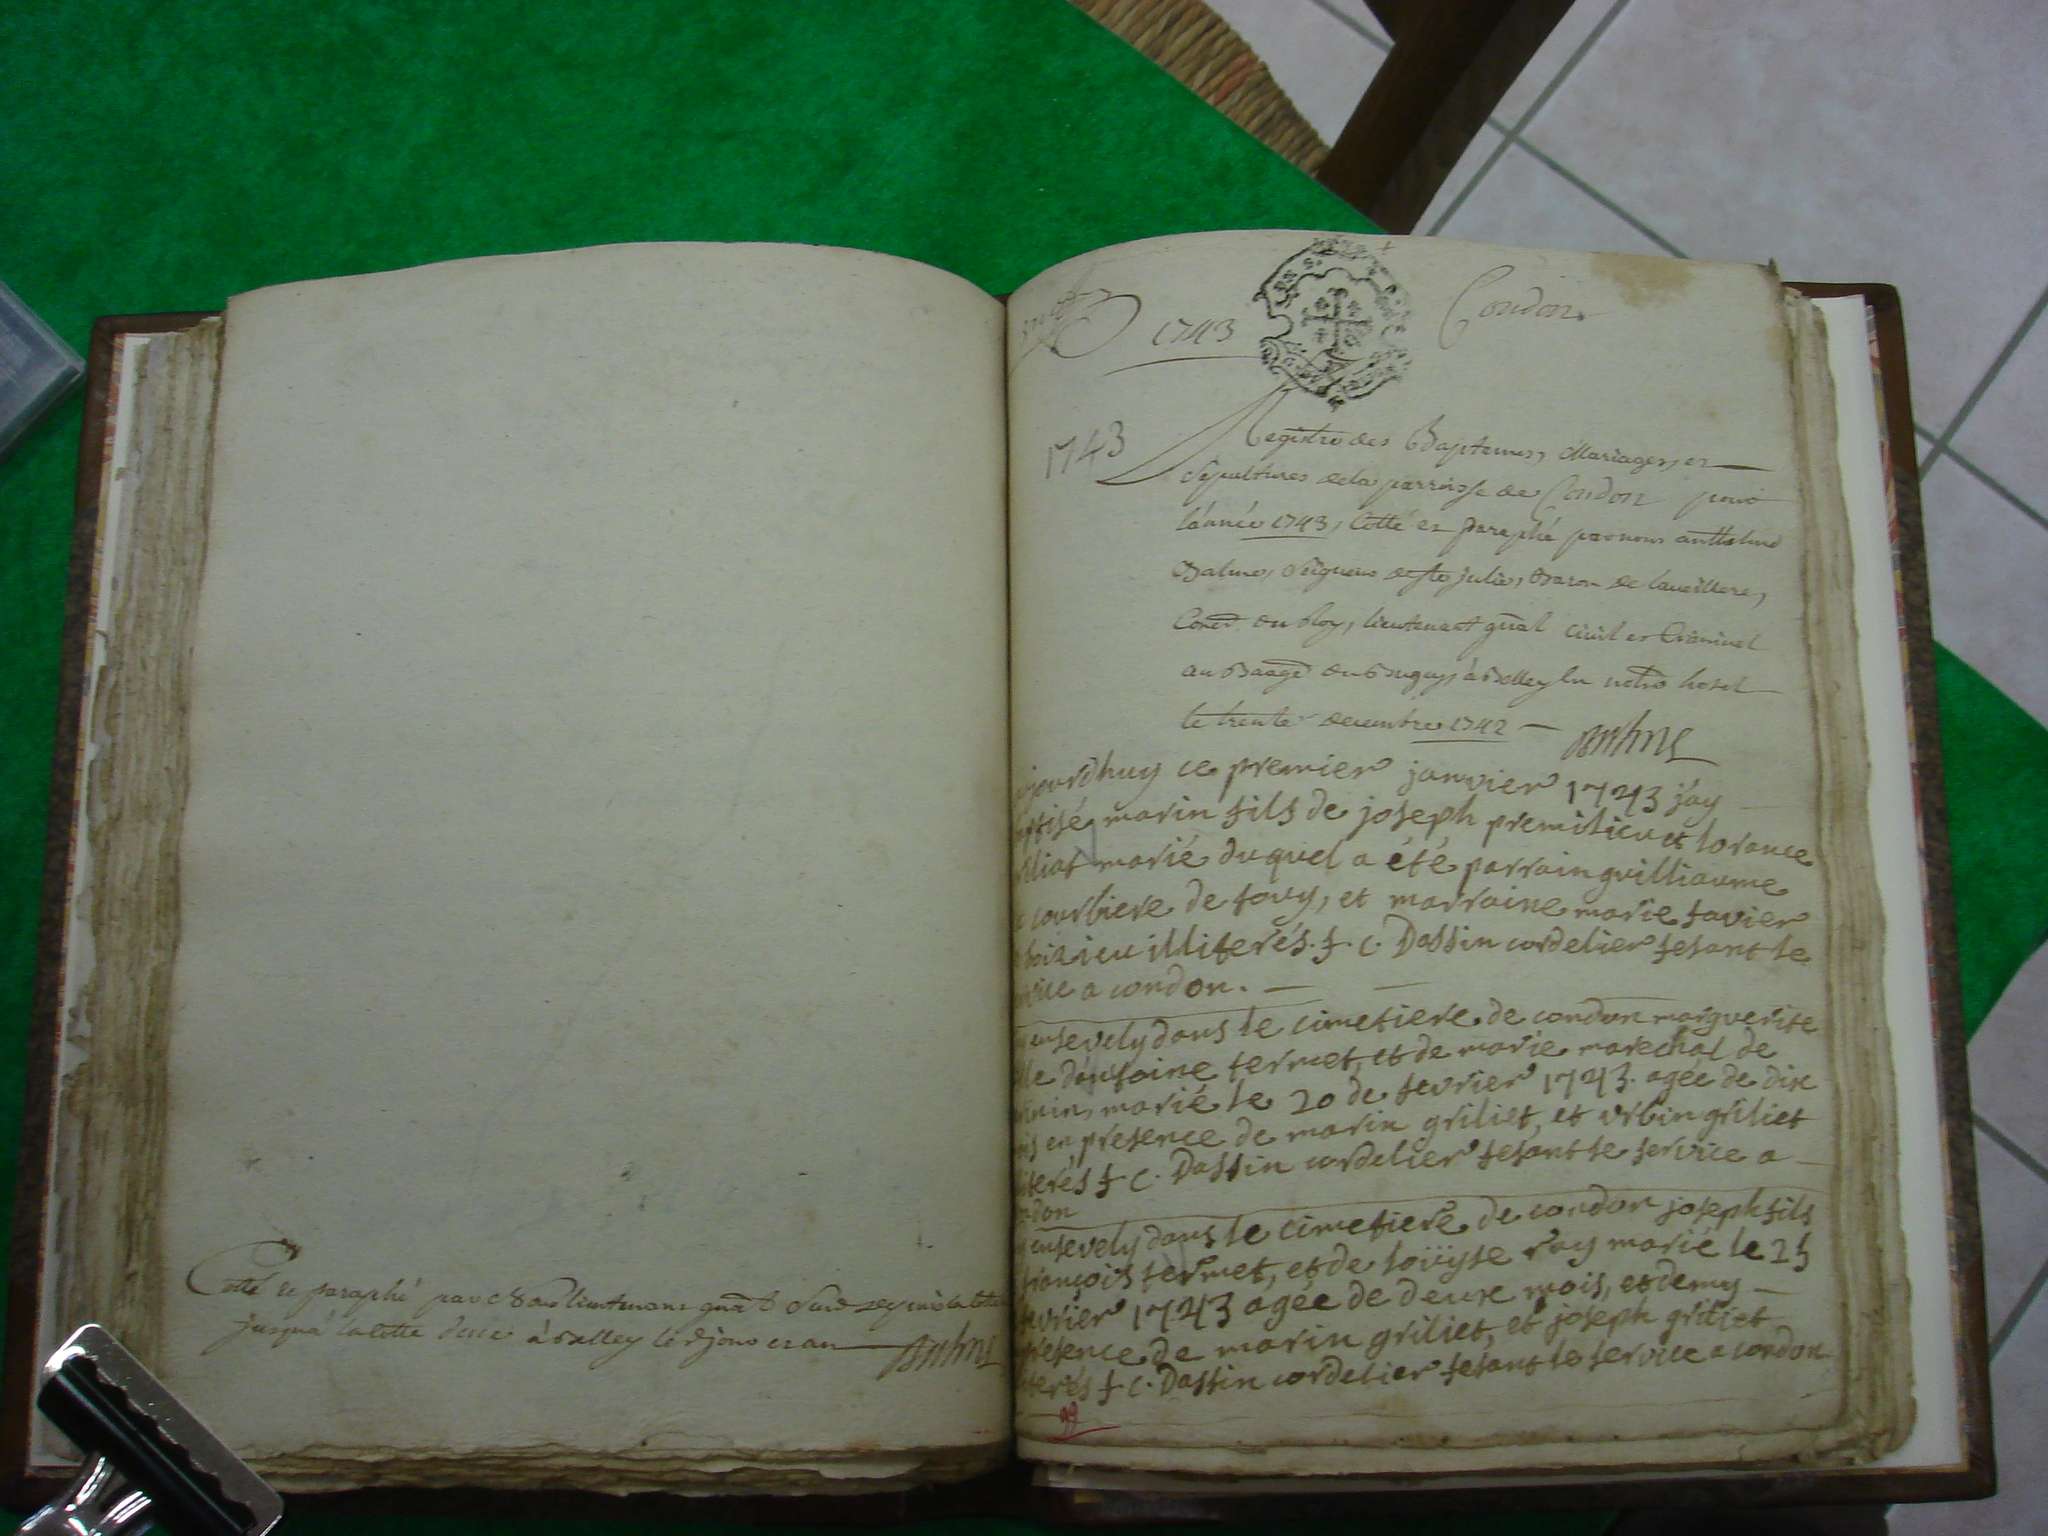 Cotté et paraphé par lieutenant gnal
jusqua la cotte à Belley jour et an
1743
Condon
1743
Registre des Baptemes, Mariages, et
Sepultures de la parroisse de Condon pour
l'année 1743, Cotté et paraphé par nous anthelme
Balme, Seigneur de ste julie, Baron de
Coner du Roy, lieutenant gnal civil et Criminel
au Baage du Bugey, à Belley En notre hotel
le trente decembre 1742
jourdhuy ce premier janvier 1743 j'ay
ptisé marin fils de joseph premilieu et lorance
marié duquel a été parrain guilliaume
courbiere de fouy, et marraine marie favier
illiterés. f. c. Dassin cordelier fesant le
vice a condon.
ensevely dans le cimetiere de condon marguerite
le dantoine fermet, et de marie marechal de
marié le 20 de fevrier 1743. agée de dix
is en presence de marin griliet, et urbin griliet
iterés f c. Dassin cordelier fesant le service a
don
ensevely dans le cimetiere de condon joseph fils
françois fermet, et de loüyse ray marié le 25
fevrier 1743 agée de deux mois, et demy
presence de marin griliet, et joseph griliet
iterés f c. Dassin cordelier fesant le service a condon
99